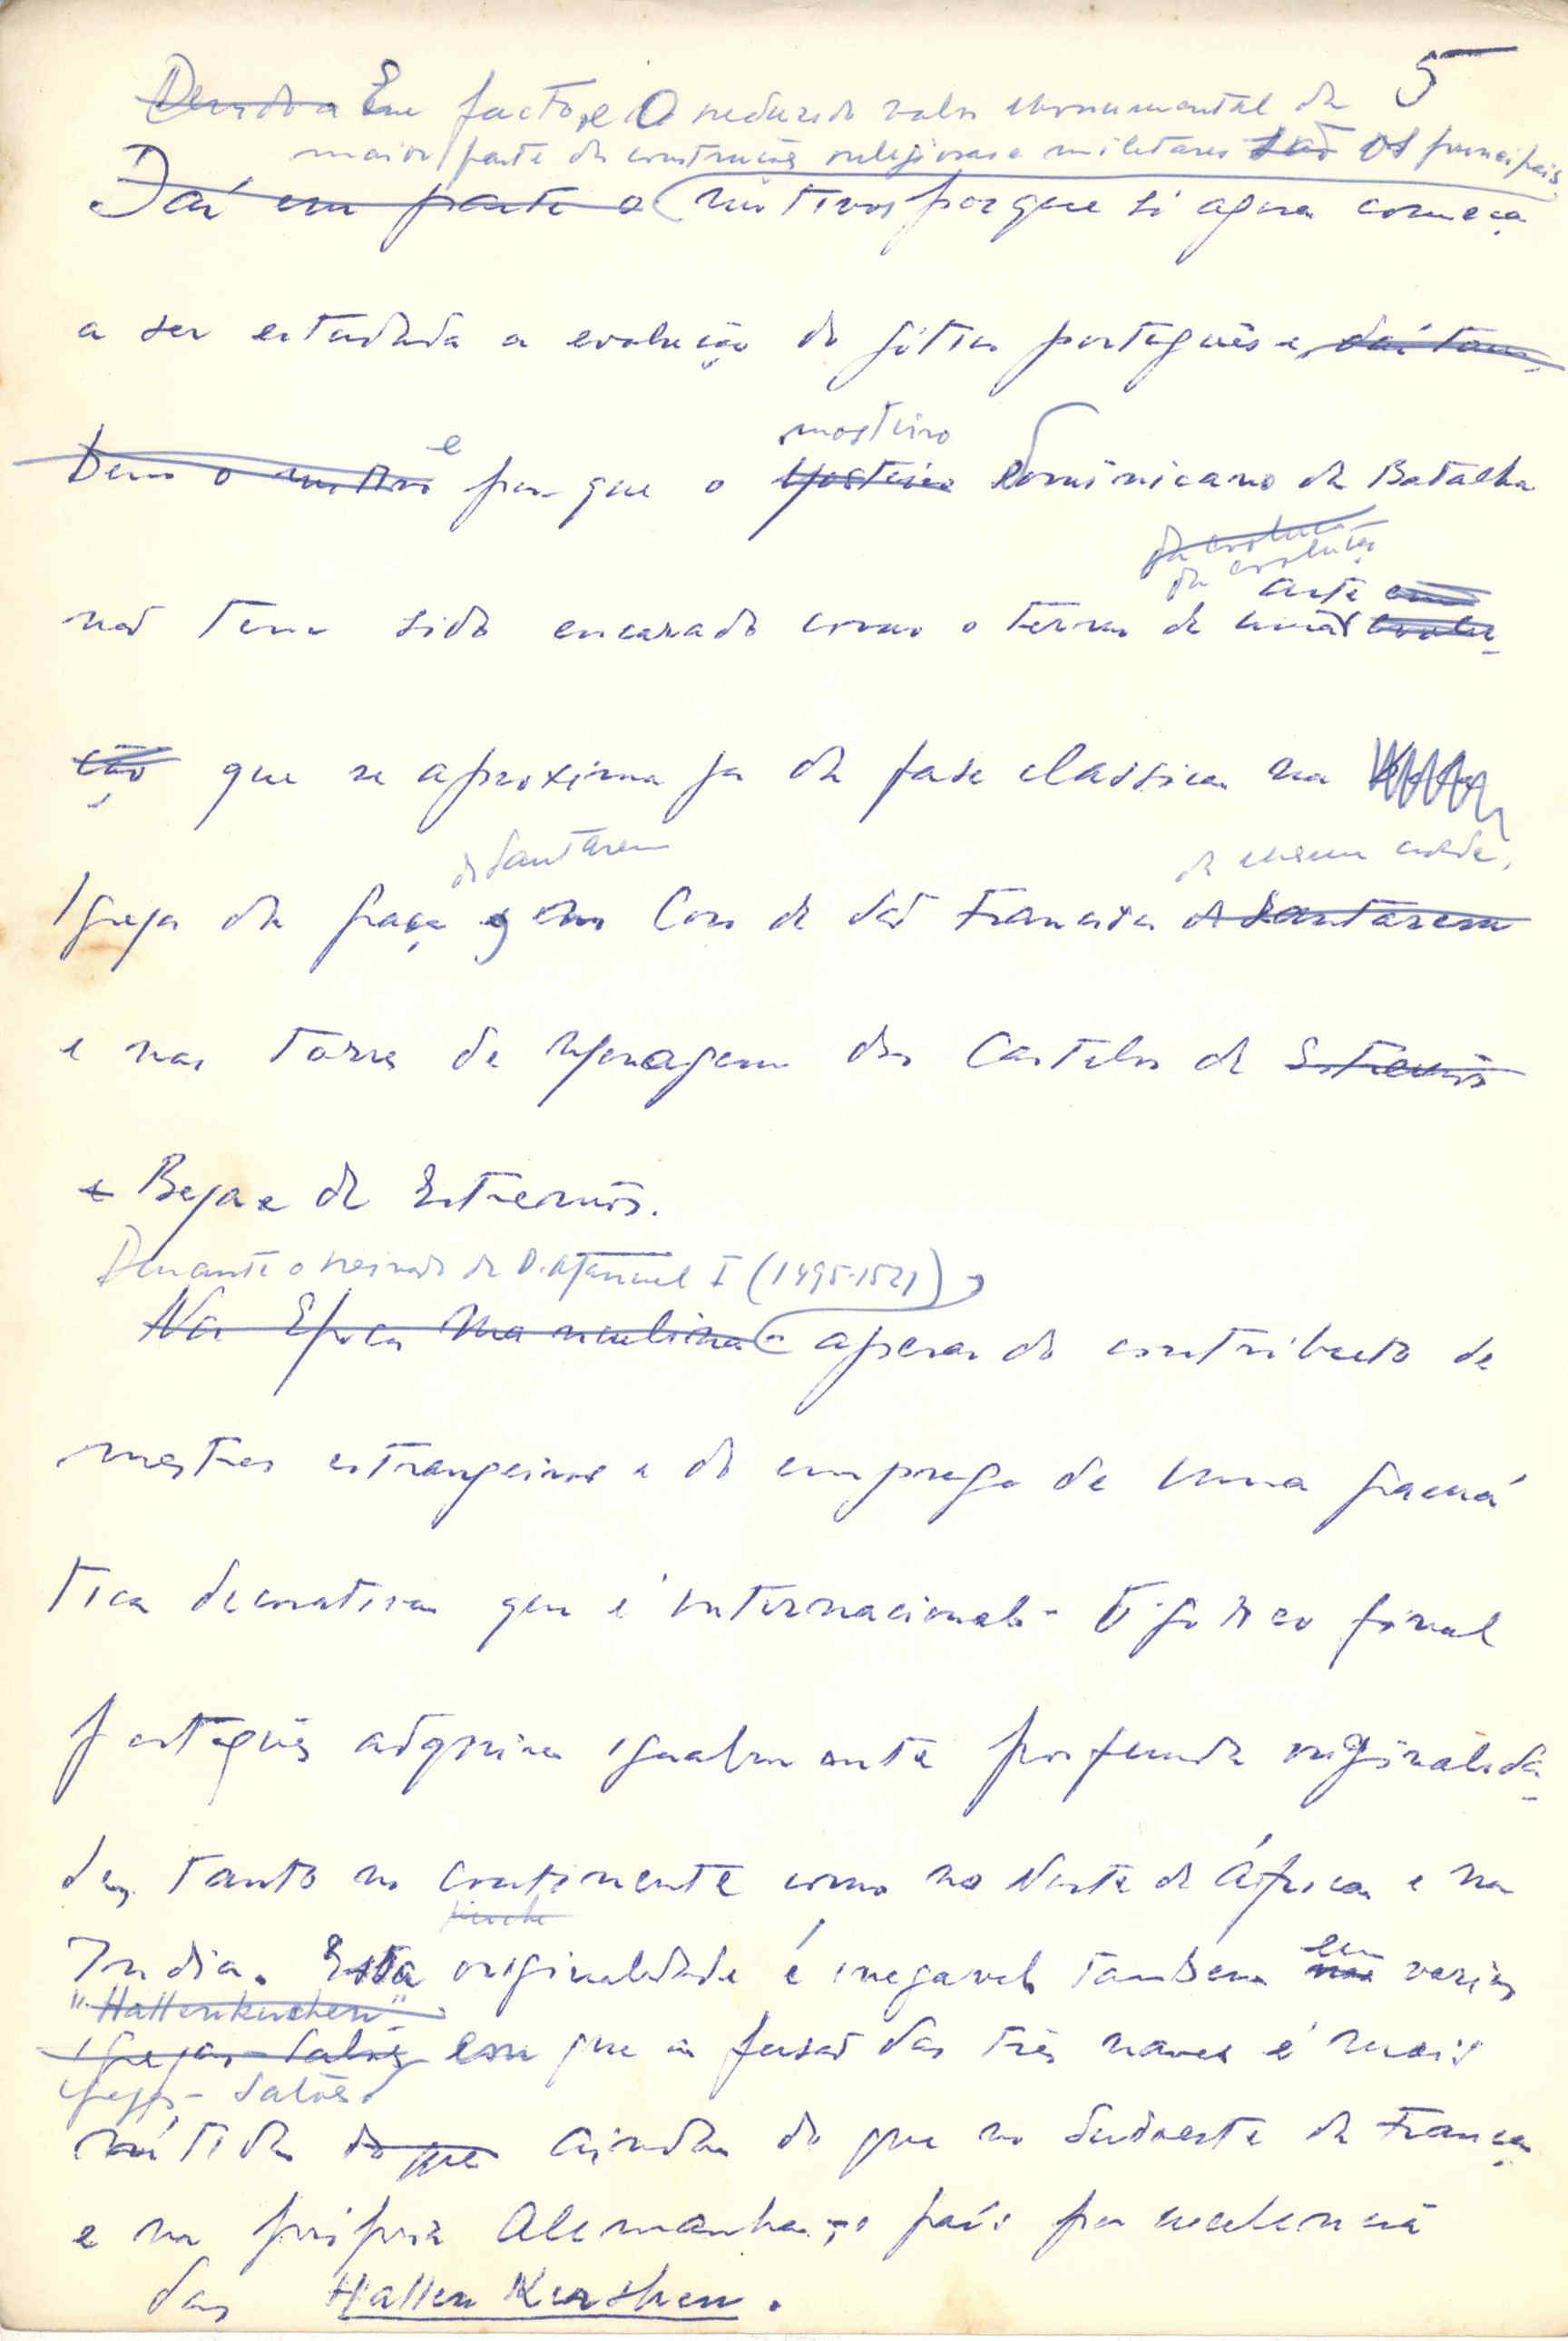 5
Em facto, e O reduzido valor monumental da
maior parte das construções religiosas e militares são os principais
Daí em parte o motivos porque só agora começa
a ser estudada a evolução do gótico português e, daí tam-
bem o motivo e porque o mosteiro Mosteiro dominicano da Batalha
da evolução
da evolução
arte em
não tem sido encarado como o termo de uma evolu-
ção que se aproxima já da fase classica na
de Santarem da mesma cidade,
Igreja da Graça, e no Coro de São Francisco de Santarem
e nas torres de Menagem dos Castelos de Estremoz
e Beja e de Estremoz.
Durante o reinado de D. Manuel I (1495-1521),
Na Epoca Manuelina - apesar do contributo de
mestres estrangeiros e do emprego de uma gramá
tica decorativa que é internacional - o gotico final
português adquirira igualmente profunda originalida-
de, tanto no continente como no Norte de África e na
India. Esta originalidade é inegavel tambem em nas varias
"Hallenkirchen"
Igrejas-Salões em que a fusão das três naves é mais
Igrejas-Salões
nítida do que ainda do que no Sudoeste da França
e na própria Alemanha, o país por excelencia
das Hallen Kirschen.